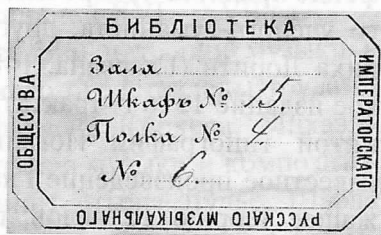 БИБЛІОТЕКА
ИМПЕРАТОРСКАГО
РУССКАГО МУЗЫКАЛЬНАГО
ОБЩЕСТВА
Зала
Шкафъ № 15.
Полка № 4.
№ 6.